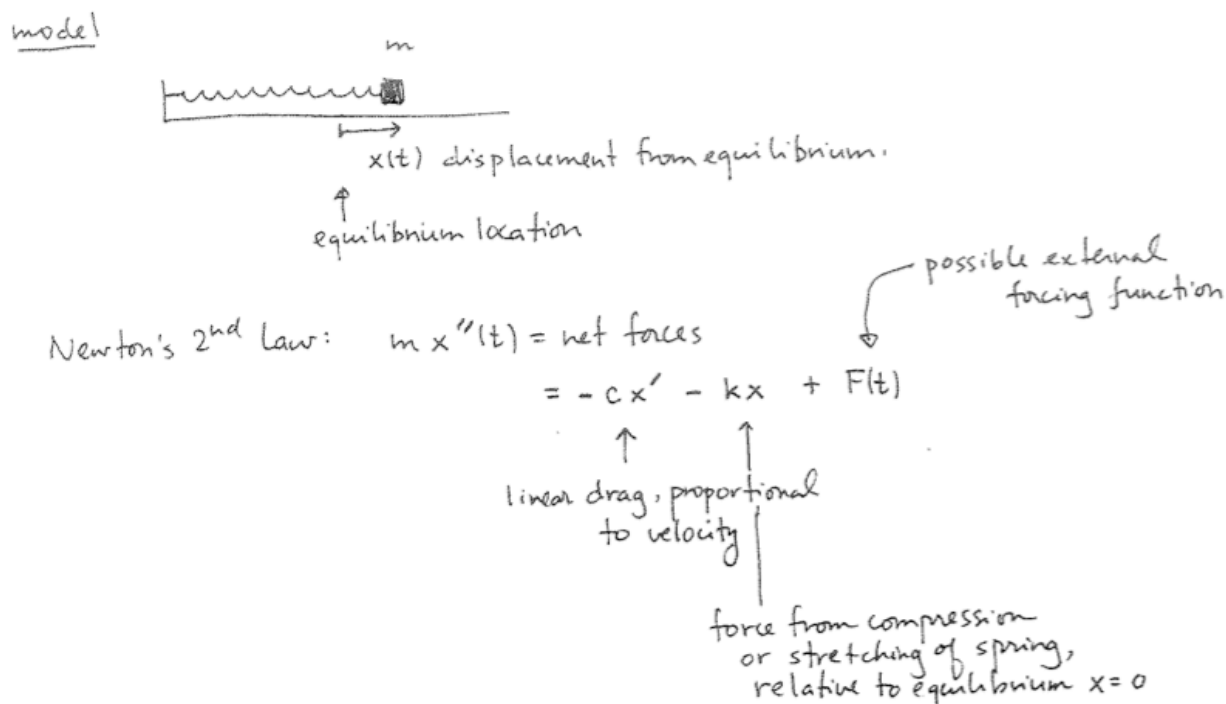 model
m
x(t) displacement from equilibrium.
equilibrium location
possible external
forcing function
Newton's 2nd Law: m x''(t) = net forces
= - c x' - kx + F(t)
linear drag, proportional
to velocity
force from compression
or stretching of spring,
relative to equilibrium x=0